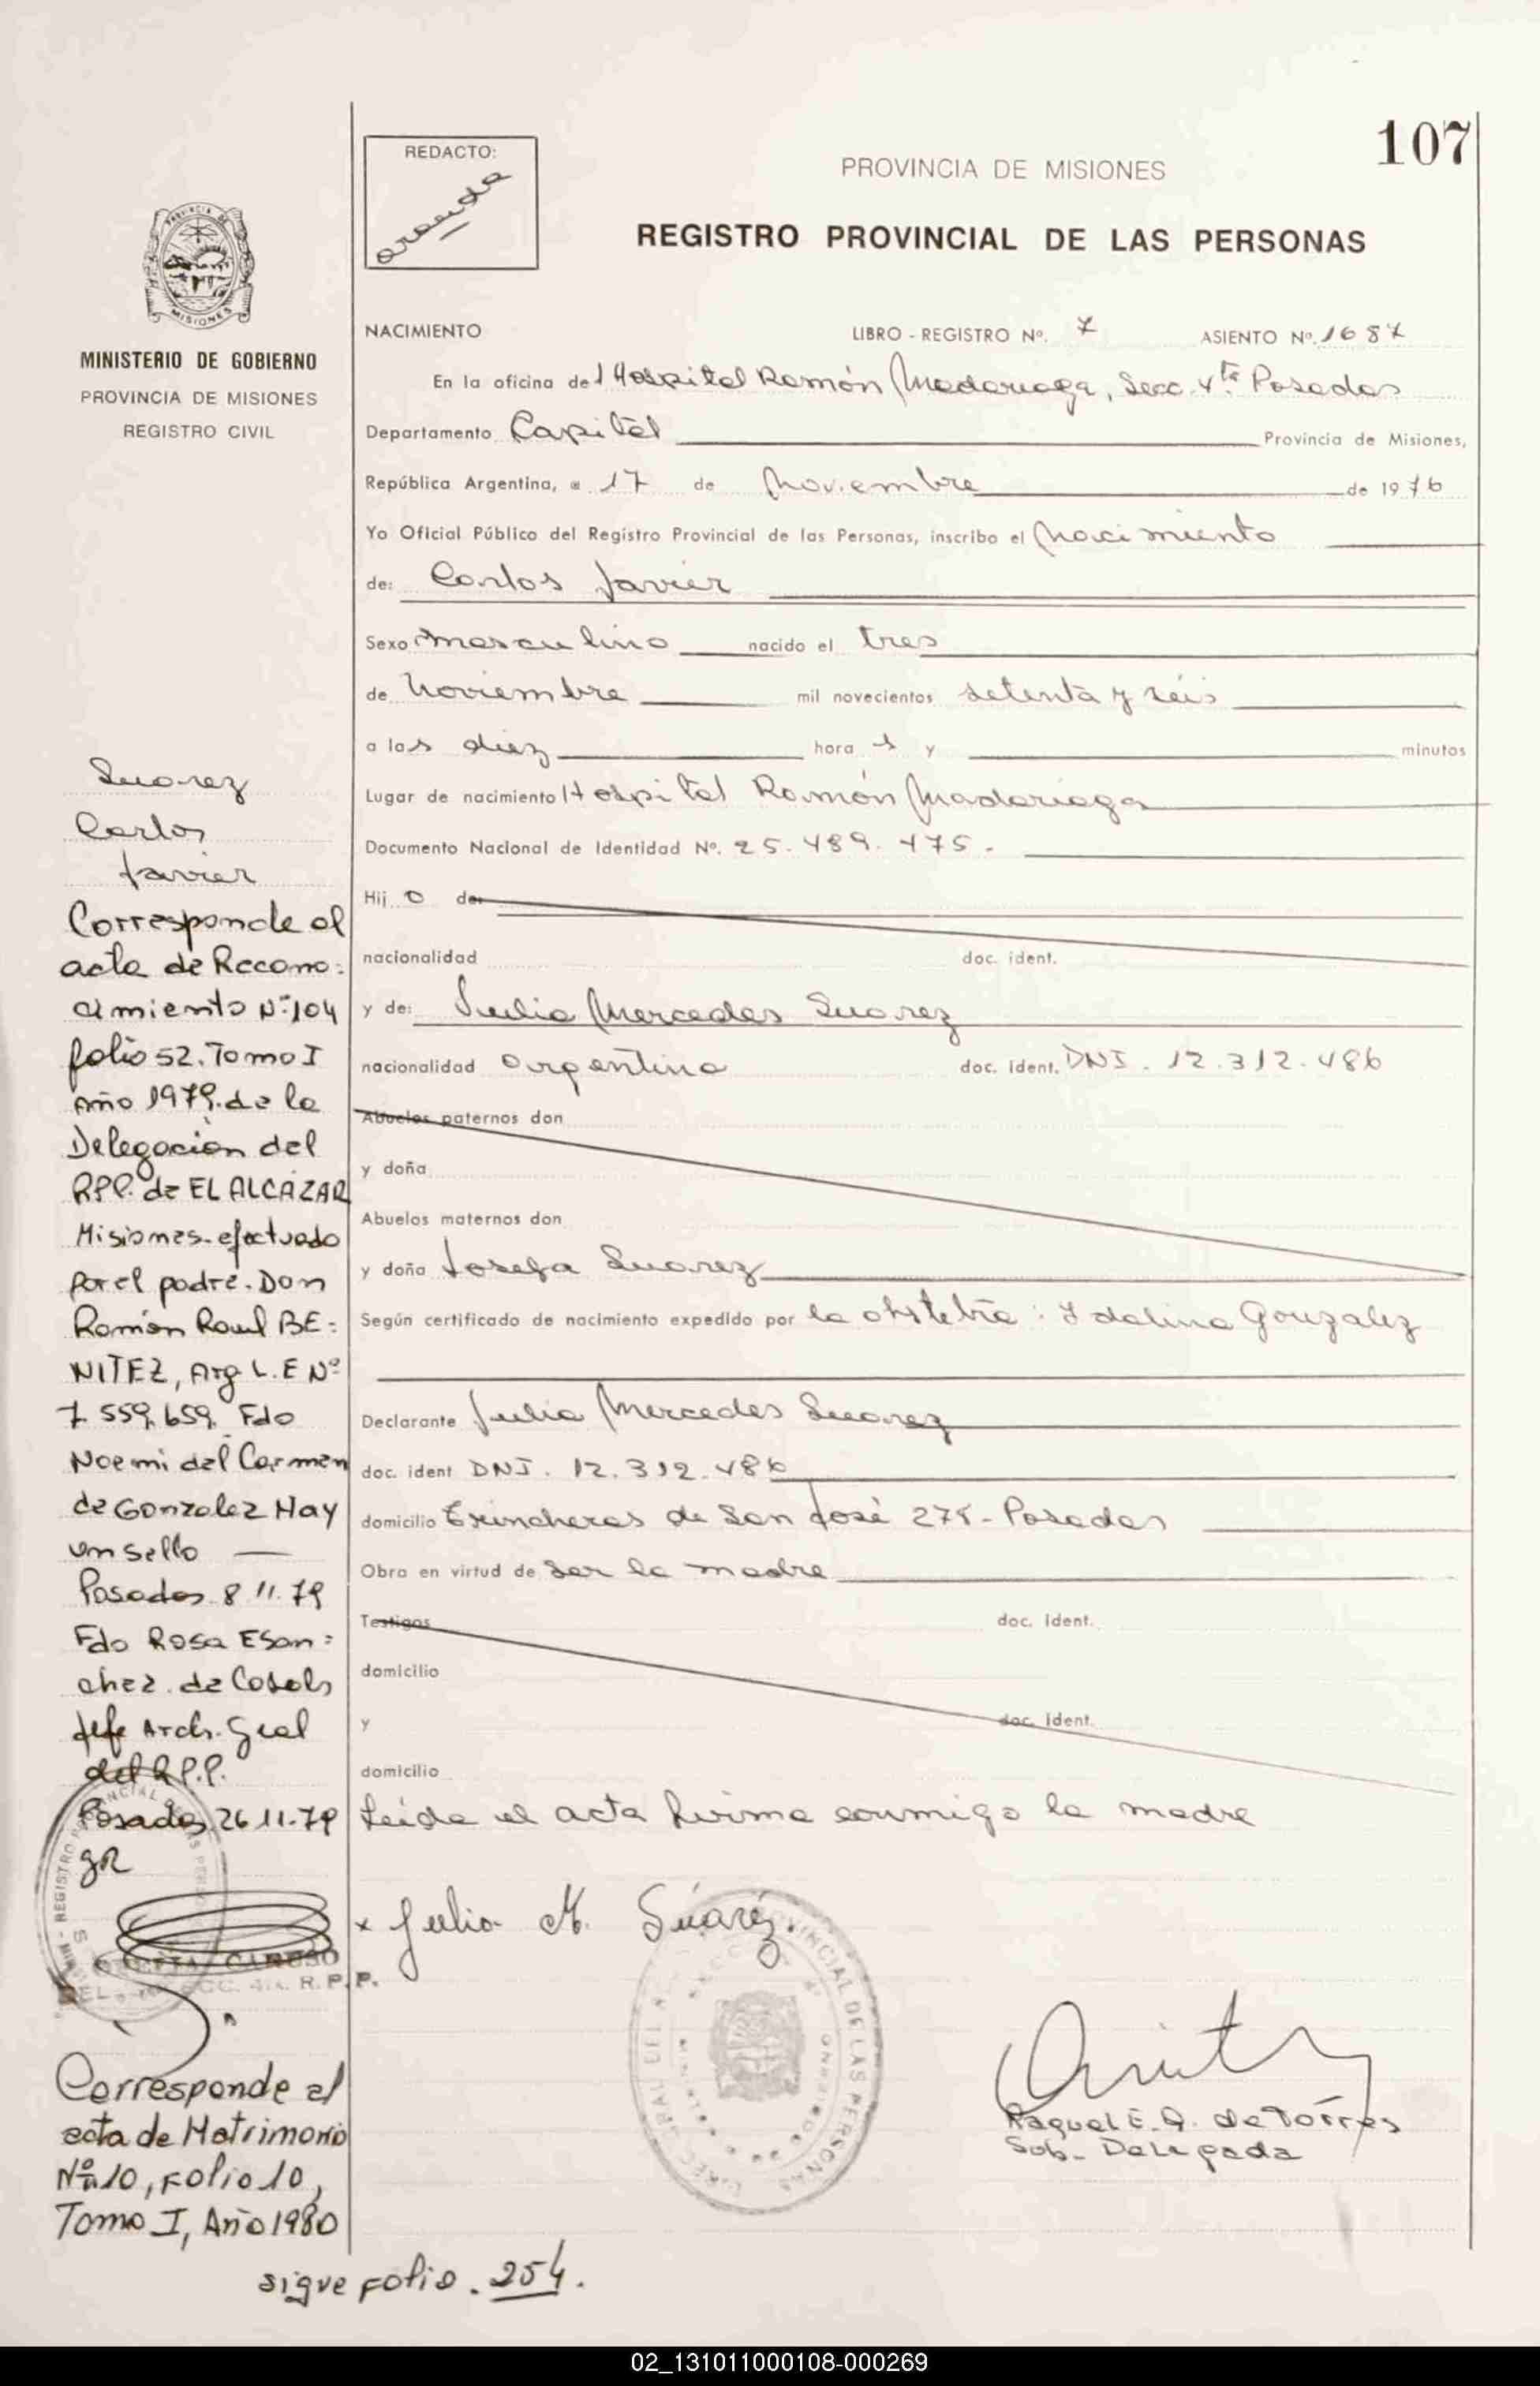 107
REDACTO:
aranda
PROVINCIA DE MISIONES
REGISTRO PROVINCIAL DE LAS PERSONAS
MINISTERIO DE GOBIERNO
PROVINCIA DE MISIONES
REGISTRO CIVIL
NACIMIENTO LIBRO - REGISTRO Nº. 7 ASIENTO Nº. 1687
En la oficina del Hospital Ramón Madariaga, Secc. 4ta Posadas
Departamento Capital Provincia de Misiones,
República Argentina, a 17 de Noviembre de 1976
Yo Oficial Público del Registro Provincial de las Personas, inscribo el Nacimiento
de: Carlos Javier
Sexo masculino nacido el tres
de Noviembre mil novecientos setenta y séis
a las diez hora s y minutos
Lugar de nacimiento Hospital Ramón Madariaga
Documento Nacional de Identidad Nº. 25.489.475.-
Hij o de:
nacionalidad doc. ident.
y de: Julia Mercedes Suarez
nacionalidad argentina doc. ident. DNI. 12.312.486
Abuelos paternos don
y doña
Abuelos maternos don
y doña Josefa Suarez
Según certificado de nacimiento expedido por la obstetra: Idalina Gonzalez
Declarante Julia Mercedes Suarez
doc. ident DNI. 12.312.486
domicilio Trincheras de San José 275- Posadas
Obra en virtud de ser la madre
Testigos doc. ident.
domicilio
y doc. ident.
domicilio
Leída el acta firma conmigo la madre
x Julia M. Suárez.
Raquel E. Q. de Torres
Sub- Delegada
Suarez
Carlos
Javier
Corresponde al
acta de Recono=
cimiento Nº 104
folio 52. Tomo I
Año 1979. de la
Delegación del
RPP. de EL ALCAZAR
Misiones- efectuado
por el padre. Don
Ramón Raul BE=
NITEZ, Arg L.E Nº
7.559.659. Fdo
Noemi del Carmen
de Gonzalez Hay
un sello
Posadas 8.11.79
Fdo Rosa E San=
chez. de Casals
Jefe Arch. Gral
del R.P.P.
Posadas, 26.11.79
gR
CARUSO
R.P.P.
Corresponde al
acta de Matrimonio
Nº 10, Folio 10,
Tomo I, Año 1980
sigue Folio. 254.
02_131011000108-000269